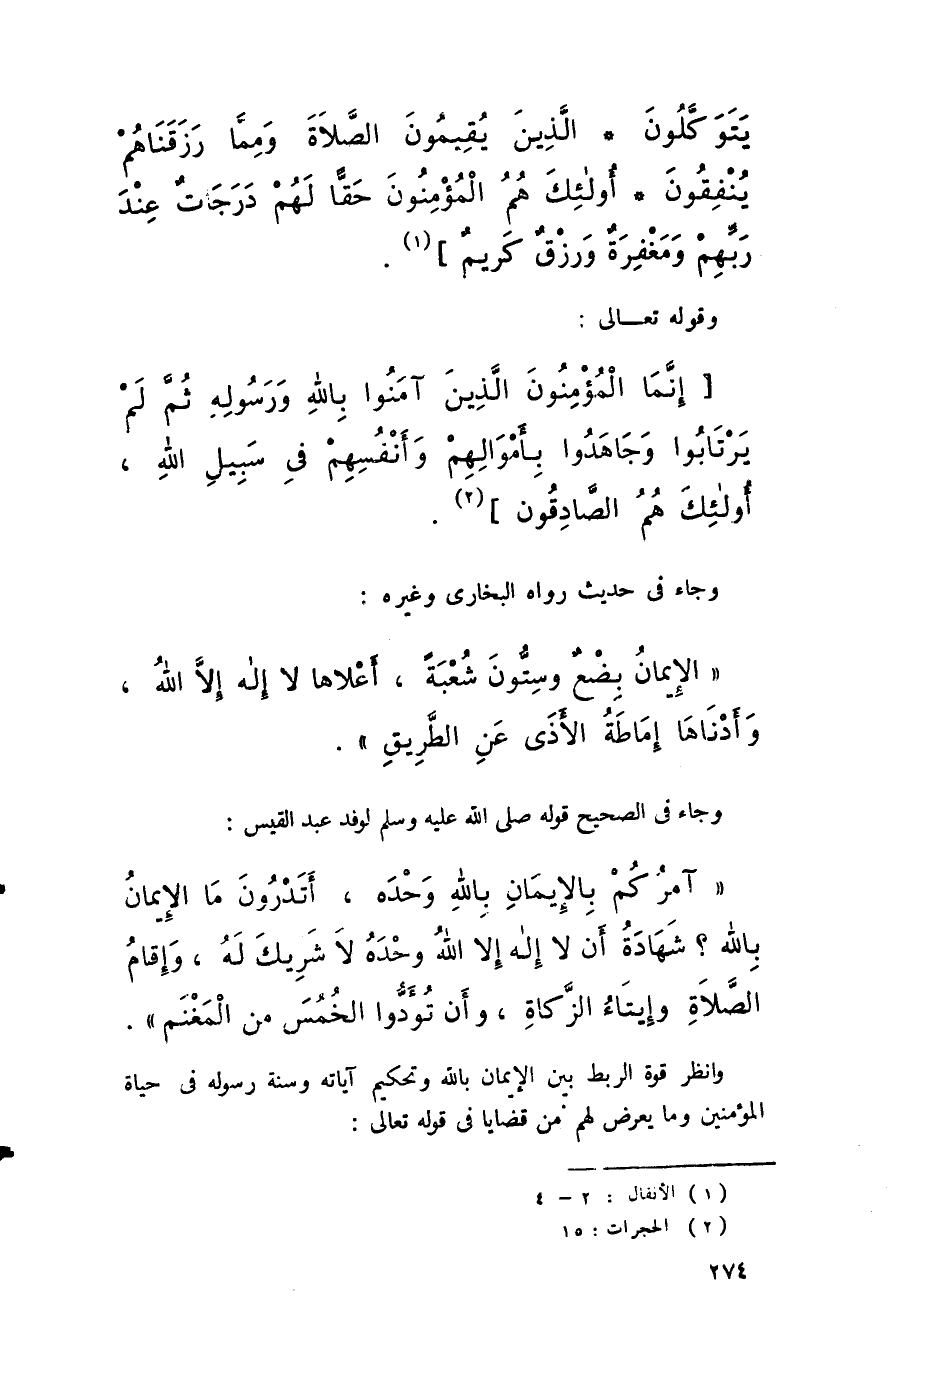 يَتَوَكَّلُونَ * الَّذِينَ يُقِيمُونَ الصَّلاَةَ وَمِمَّا رَزَقَنَاهُمْ
يُنْفِقُونَ * أُولٰئِكَ هُمُ الْمُؤْمِنُونَ حَقًّا لَهُمْ دَرَجَاتٌ عِنْدَ
رَبِّهِمْ وَمَغْفِرَةٌ وَرِزْقٌ كَرِيمٌ ](١) .
وقوله تعـــالى :
[ إِنَّمَا الْمُؤْمِنُونَ الَّذِينَ آمَنُوا بِاللهِ وَرَسُولِهِ ثُمَّ لَمْ
يَرْتَابُوا وَجَاهَدُوا بِأَمْوَالِهِمْ وَأَنْفُسِهِمْ فِي سَبِيلِ اللهِ ،
أُولٰئِكَ هُمُ الصَّادِقُون ](٢) .
وجاء فى حديث رواه البخارى وغيره :
« الإِيمَانُ بِضْعٌ وسِتُّونَ شُعْبَةً ، أَعْلاها لا إِلٰه إِلاَّ اللهُ ،
وَأَدْنَاهَا إِمَاطَةُ الأَذَى عَنِ الطَّرِيقِ » .
وجاء فى الصحيح قوله صلى الله عليه وسلم لوفد عبد القيس :
« آمرُكُمْ بِالإِيمَانِ بِاللهِ وَحْدَه ، أَتَدْرُونَ مَا الإِيمانُ
بِالله ؟ شَهَادَةُ أَن لا إِلٰه إلا اللهُ وحْدَهُ لاَ شَرِيكَ لَهُ ، وَإِقامُ
الصَّلاَةِ وإِيتَاءُ الزَّكاةِ ، وأَن تُؤَدُّوا الخُمُسَ من الْمَغْنَم » .
وانظر قوة الربط بين الإيمان بالله وتحكيم آياته وسنة رسوله فى حياة
المؤمنين وما يعرض لهم من قضايا فى قوله تعالى :
(١) الأنفال : ٢ – ٤
(٢) الحجرات : ١٥
٢٧٤